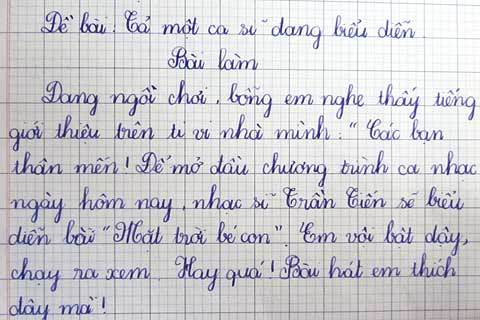 Đề bài: Tả một ca sĩ đang biểu diễn.
Bài làm
Đang ngồi chơi, bỗng em nghe thấy tiếng
giới thiệu trên ti vi nhà mình: "Các bạn
thân mến! Để mở đầu chương trình ca nhạc
ngày hôm nay, nhạc sĩ Trần Tiến sẽ biểu
diễn bài "Mặt trời bé con". Em vội bật dậy,
chạy ra xem. Hay quá! Bài hát em thích
đây mà!